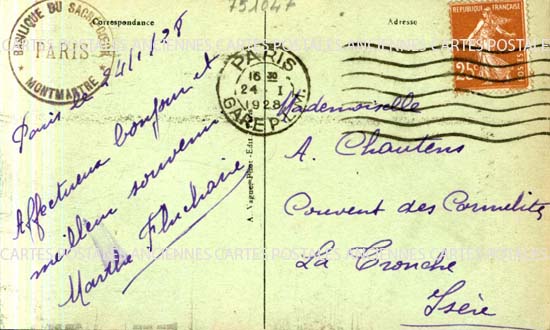 751047
Correspondance
Adresse
BASILIQUE DU SACRÉ-COEUR
PARIS
* MONTMARTRE *
PARIS
16 30
24 - I
1928
GARE P.L.M.
REPUBLIQUE FRANÇAISE
25c
POSTES
CARTES POSTALES ANCIENNES CARTES POSTALES ANCIENNES CARTES POSTALES
Paris le 24/1/28
Affectueux bonjour et
meilleur souvenir
Marthe Fluchaire
A. Vague Phot-Edit
Mademoiselle
A. Chautens
Couvent des Carmelites
La Tronche
Isère
CARTES POSTALES ANCIENNES CARTES POSTALES ANCIENNES CARTES POSTALES